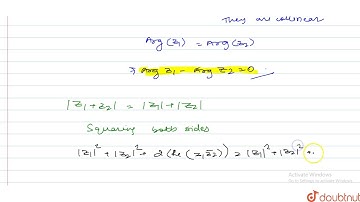 They are collinear
Arg (z₁) = Arg (z₂)
⇒ Arg z₁ - Arg z₂ = 0
|z₁ + z₂| = |z₁| + |z₂|
Squaring both sides
|z₁|² + |z₂|² + 2 (Re (z₁ z̄₂)) = |z₁|² + |z₂|² +
Activate Windows
Go to Settings to activate Windows.
doubtnut